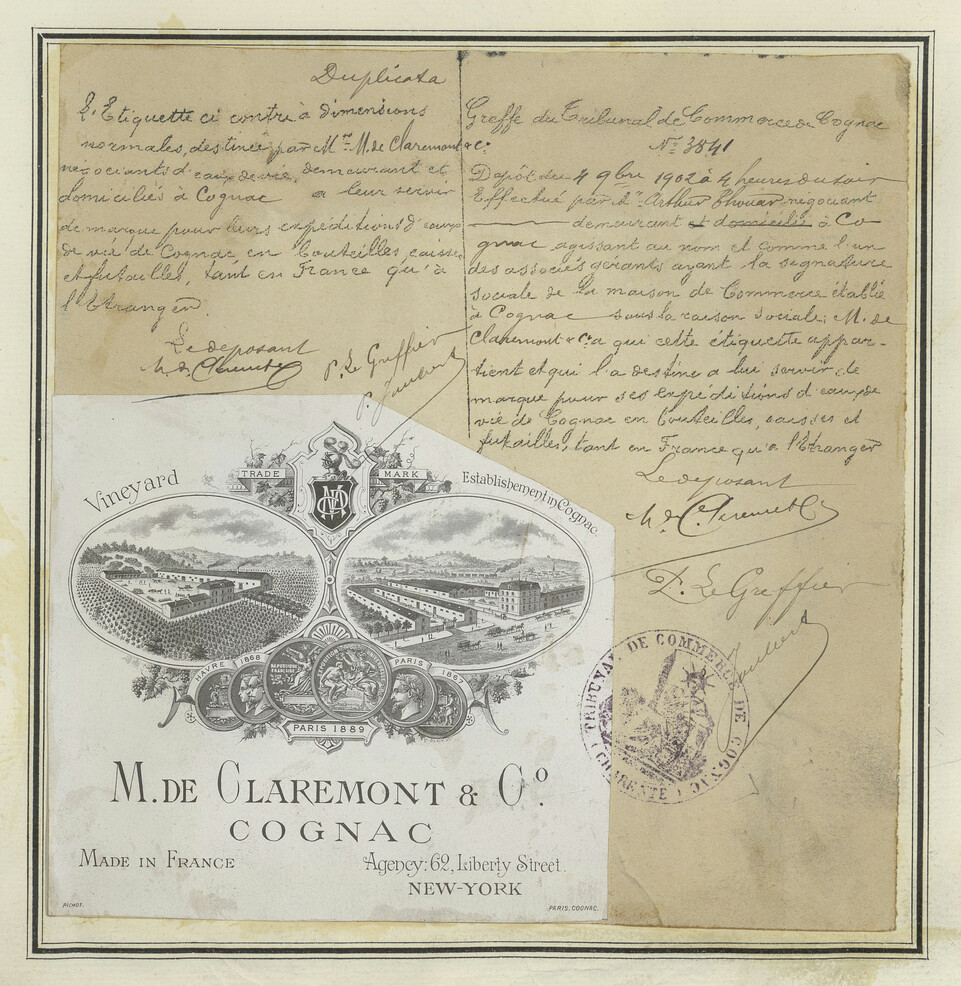 Duplicata
L'Etiquette ci contre à dimensions
normales, destinée par Mrs M. de Claremont & Co
négociants d'eaux de vie, demeurant et
domiciliés à Cognac a leur servir
de marque pour leurs expéditions d'eaux
de vie de Cognac, en bouteilles, caisses
et futailles, tant en France qu'à
l'Etranger.
Le deposant
M. de Claremont & Co
P. Le Greffier
P. Joubert
Greffe du Tribunal de Commerce de Cognac
No 3841
Dépôt du 4 9bre 1902 à 4 heures du soir
Effectué par Mr Arthur Chouar négociant
demeurant et domicilié à Co
gnac, agissant au nom et comme l'un
des associés gérants ayant la signature
sociale de la maison de Commerce établie
à Cognac sous la raison sociale, M. de
Claremont & Co a qui cette étiquette appar-
tient et qui l'a destine a lui servir de
marque pour ses expéditions d'eaux de
vie de Cognac en bouteilles, caisses et
futailles, tant en France qu'a l'Etranger
Le deposant
M. de Claremont & Co
P. Le Greffier
Joubert
TRIBUNAL DE COMMERCE DE COGNAC
(CHARENTE)
TRADE MARK
Vineyard
Establishement in Cognac.
HAVRE 1868
PARIS 1867
REPUBLIQUE FRANÇAISE
PARIS 1889
M. DE CLAREMONT & Co.
COGNAC
MADE IN FRANCE
Agency: 62, Liberty Street.
NEW-YORK
PICHOT.
PARIS, COGNAC.